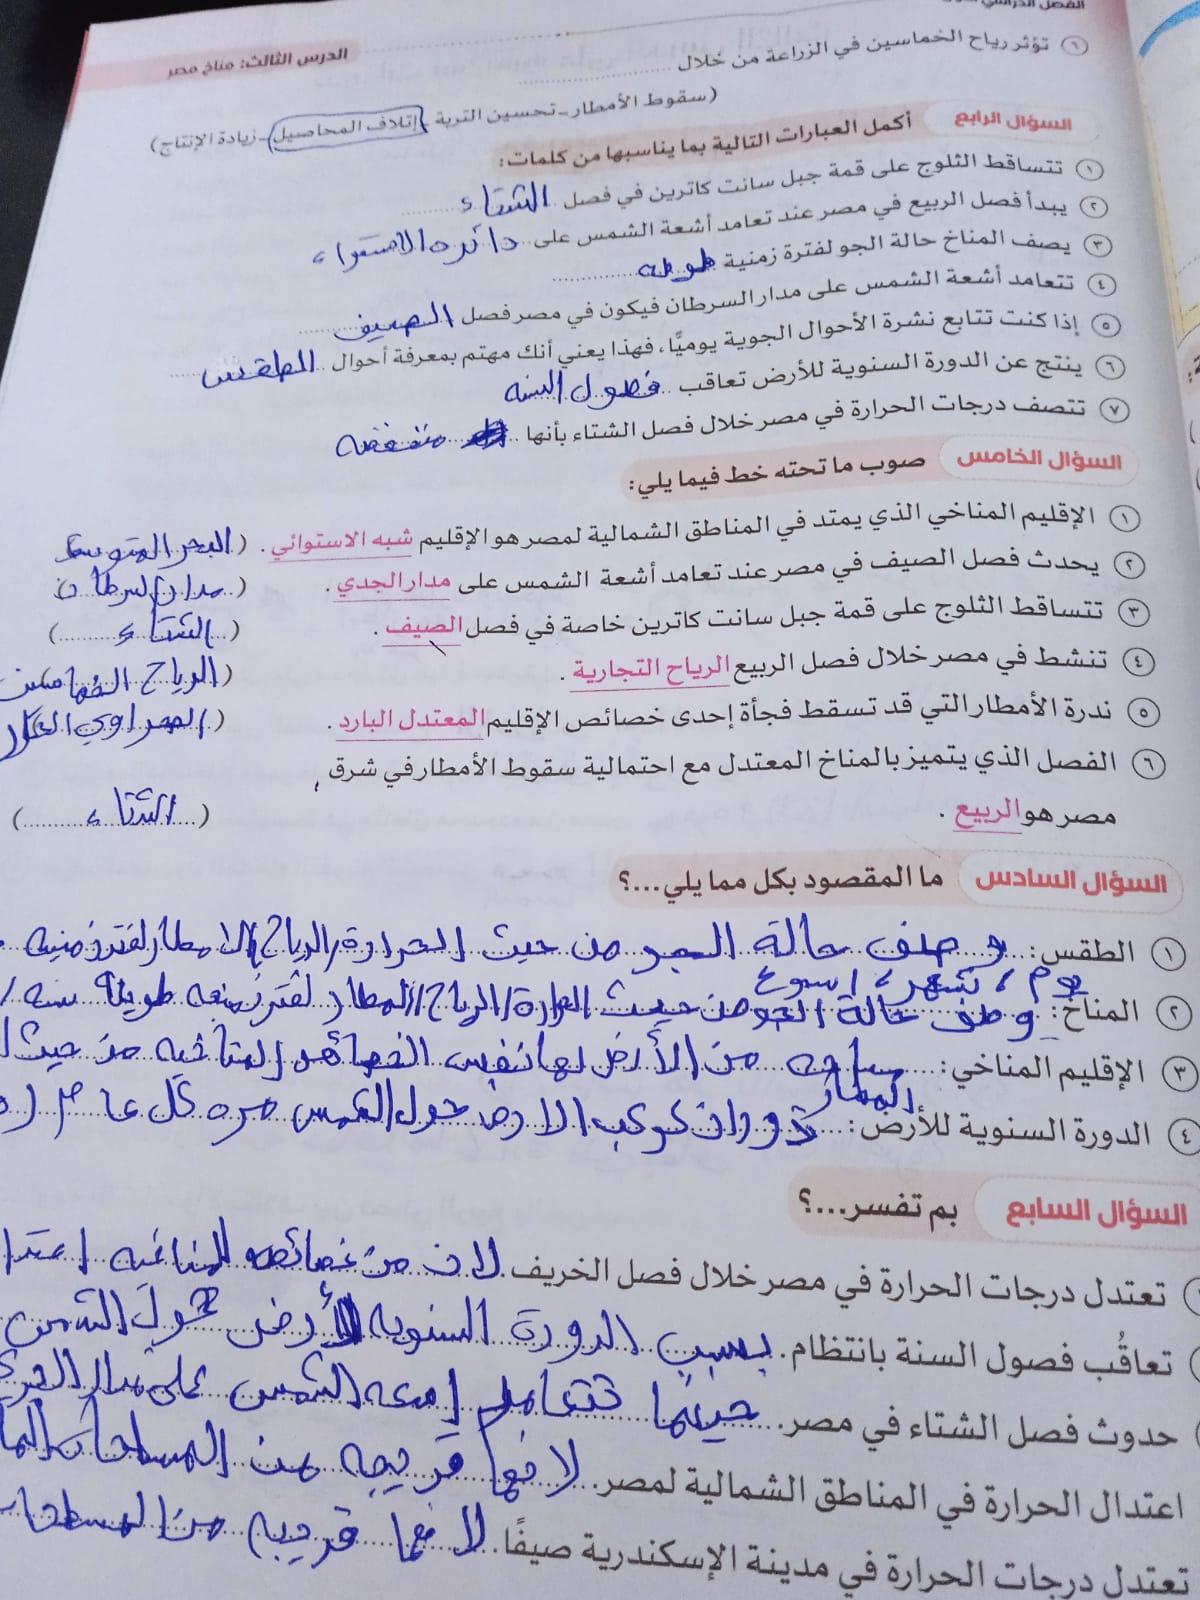 الفصل الدراسي
الدرس الثالث: مناخ مصر
٦ تؤثر رياح الخماسين في الزراعة من خلال
(سقوط الأمطار - تحسين التربة - إتلاف المحاصيل - زيادة الإنتاج)
السؤال الرابع أكمل العبارات التالية بما يناسبها من كلمات:
١ تتساقط الثلوج على قمة جبل سانت كاترين في فصل الشتاء
٢ يبدأ فصل الربيع في مصر عند تعامد أشعة الشمس على دائره الاستواء
٣ يصف المناخ حالة الجو لفترة زمنية طويله
٤ تتعامد أشعة الشمس على مدار السرطان فيكون في مصر فصل الصيف
٥ إذا كنت تتابع نشرة الأحوال الجوية يوميًا، فهذا يعني أنك مهتم بمعرفة أحوال الطقس
٦ ينتج عن الدورة السنوية للأرض تعاقب فصول السنه
٧ تتصف درجات الحرارة في مصر خلال فصل الشتاء بأنها منخفضه
السؤال الخامس صوب ما تحته خط فيما يلي:
١ الإقليم المناخي الذي يمتد في المناطق الشمالية لمصر هو الإقليم شبه الاستوائي. (البحر المتوسط
٢ يحدث فصل الصيف في مصر عند تعامد أشعة الشمس على مدار الجدي. (مدار السرطان)
٣ تتساقط الثلوج على قمة جبل سانت كاترين خاصة في فصل الصيف. (الشتاء)
٤ تنشط في مصر خلال فصل الربيع الرياح التجارية. (الرياح الخماسين
٥ ندرة الأمطار التي قد تسقط فجأة إحدى خصائص الإقليم المعتدل البارد. (الصحراوي الحار
٦ الفصل الذي يتميز بالمناخ المعتدل مع احتمالية سقوط الأمطار في شرق
مصر هو الربيع. (الشتاء)
السؤال السادس ما المقصود بكل مما يلي...؟
١ الطقس: وصف حالة الجو من حيث الحرارة/الرياح/الامطار لفتره زمنيه
يوم، شهر، اسبوع
٢ المناخ: وصف حالة الجو من حيث الحرارة/الرياح/المطار لفتر زمنيه طويلة سنه/
٣ الإقليم المناخي: مساحه من الأرض لها نفس الخصائص المناخيه من حيث
المطار
٤ الدورة السنوية للأرض: دوران كوكب الارض حول الشمس مره كل عام
السؤال السابع بم تفسر...؟
تعتدل درجات الحرارة في مصر خلال فصل الخريف. لان من خصائصه المناخيه اعتدا
تعاقُب فصول السنة بانتظام. بسبب الدورة السنويه للأرض حول الشمس
حدوث فصل الشتاء في مصر. حينما تتعامد اشعه الشمس على مدار
اعتدال الحرارة في المناطق الشمالية لمصر. لانها قريبه من المسطحات الما
تعتدل درجات الحرارة في مدينة الإسكندرية صيفًا. لانها قريبه من المسطحا